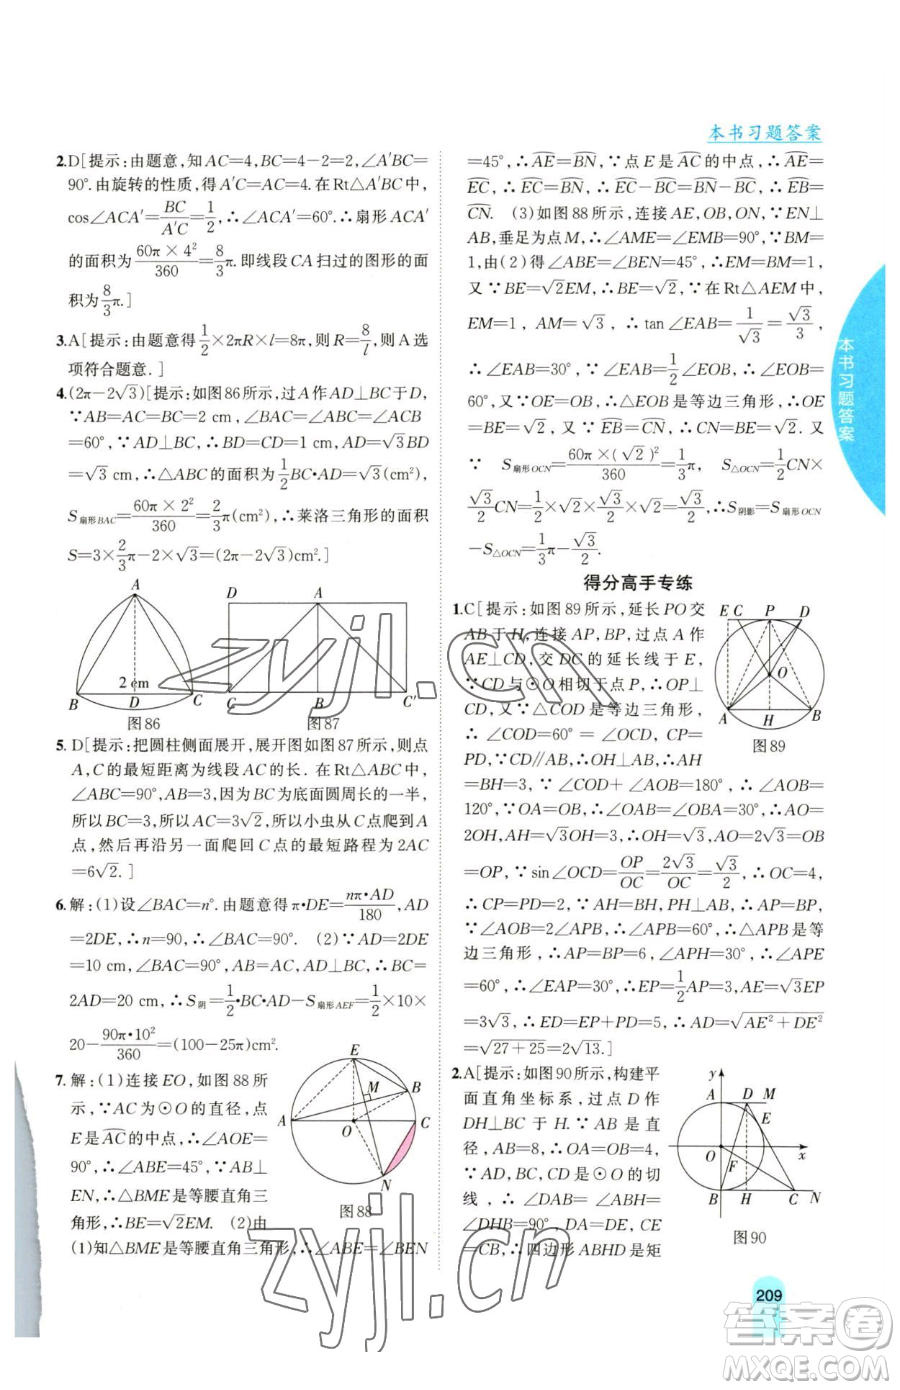 本书习题答案
2.D[提示:由题意,知AC=4,BC=4-2=2,∠A′BC=
90°.由旋转的性质,得A′C=AC=4.在Rt△A′BC中,
cos∠ACA′=BC/A′C=1/2,∴∠ACA′=60°.∴扇形ACA′
的面积为60π×4²/360=8/3π.即线段CA扫过的图形的面
积为8/3π.]
3.A[提示:由题意得1/2×2πR×l=8π,则R=8/l,则A选
项符合题意.]
4.(2π-2√3)[提示:如图86所示,过A作AD⊥BC于D,
∵AB=AC=BC=2 cm,∠BAC=∠ABC=∠ACB
=60°,∵AD⊥BC,∴BD=CD=1 cm,AD=√3BD
=√3 cm,∴△ABC的面积为1/2BC•AD=√3(cm²),
S扇形BAC=60π×2²/360=2/3π(cm²),∴莱洛三角形的面积
S=3×2/3π-2×√3=(2π-2√3)cm².]
A
2 cm
B D C
图86
D A
C B C′
图87
5.D[提示:把圆柱侧面展开,展开图如图87所示,则点
A,C的最短距离为线段AC的长.在Rt△ABC中,
∠ABC=90°,AB=3,因为BC为底面圆周长的一半,
所以BC=3,所以AC=3√2,所以小虫从C点爬到A
点,然后再沿另一面爬回C点的最短路程为2AC
=6√2.]
6.解:(1)设∠BAC=n°.由题意得π•DE=nπ•AD/180,AD
=2DE,∴n=90,∴∠BAC=90°. (2)∵AD=2DE
=10 cm,∠BAC=90°,AB=AC,AD⊥BC,∴BC=
2AD=20 cm,∴S阴=1/2•BC•AD-S扇形AEF=1/2×10×
20-90π•10²/360=(100-25π)cm².
7.解:(1)连接EO,如图88所
示,∵AC为⊙O的直径,点
E是AC⌒的中点,∴∠AOE=
90°,∴∠ABE=45°,∵AB⊥
EN,∴△BME是等腰直角三
角形,∴BE=√2EM. (2)由
(1)知△BME是等腰直角三角形,∴∠ABE=∠BEN
E
M
B
A C
O
N
图88
=45°,∴AE⌒=BN⌒,∵点E是AC⌒的中点,∴AE⌒=
EC⌒,∴EC⌒=BN⌒,∴EC⌒-BC⌒=BN⌒-BC⌒,∴EB⌒=
CN⌒. (3)如图88所示,连接AE,OB,ON,∵EN⊥
AB,垂足为点M,∴∠AME=∠EMB=90°,∵BM=
1,由(2)得∠ABE=∠BEN=45°,∴EM=BM=1,
又∵BE=√2EM,∴BE=√2,∵在Rt△AEM中,
EM=1,AM=√3,∴tan∠EAB=1/√3=√3/3,
∴∠EAB=30°,∵∠EAB=1/2∠EOB,∴∠EOB=
60°,又∵OE=OB,∴△EOB是等边三角形,∴OE
=BE=√2,又∵EB⌒=CN⌒,∴CN=BE=√2.又
∵S扇形OCN=60π×(√2)²/360=1/3π,S△OCN=1/2CN×
√3/2CN=1/2×√2×√3/2×√2=√3/2,∴S阴影=S扇形OCN
-S△OCN=1/3π-√3/2.
得分高手专练
1.C[提示:如图89所示,延长PO交
AB于H,连接AP,BP,过点A作
AE⊥CD,交DC的延长线于E,
∵CD与⊙O相切于点P,∴OP⊥
CD,∵△COD是等边三角形,
∴∠COD=60°,OC=OD,CP=
PD,∵CD∥AB,∴OH⊥AB,∴AH
=BH=3,∵∠COD+∠AOB=180°,∴∠AOB=
120°,∵OA=OB,∴∠OAB=∠OBA=30°,∴AO=
2OH,AH=√3OH=3,∴OH=√3,AO=2√3=OB
=OP,∵sin∠OCD=OP/OC=2√3/OC=√3/2,∴OC=4,
∴CP=PD=2,∵AH=BH,PH⊥AB,∴AP=BP,
∵∠AOB=2∠APB=120°,∴∠APB=60°,∴△APB是等
边三角形,∴AP=BP=6,∠APH=30°,∴∠APE=
60°,∴∠EAP=30°,∴EP=1/2AP=3,AE=√3EP
=3√3,∴ED=EP+PD=5,∴AD=√(AE²+DE²)
=√(27+25)=2√13.]
E C P D
O
A H B
图89
2.A[提示:如图90所示,构建平
面直角坐标系,过点D作
DH⊥BC于H.∵AB是直
径,AB=8,∴OA=OB=4,
∵AD,BC,CD是⊙O的切
线,∴∠DAB=∠ABH=
∠DHB=90°,DA=DE,CE
=CB,∴四边形ABHD是矩
y
A D M
E
O F x
B H C N
图90
本书习题答案
209
zyjl.cn
zyjl.cn
答案圈
MXQE.COM